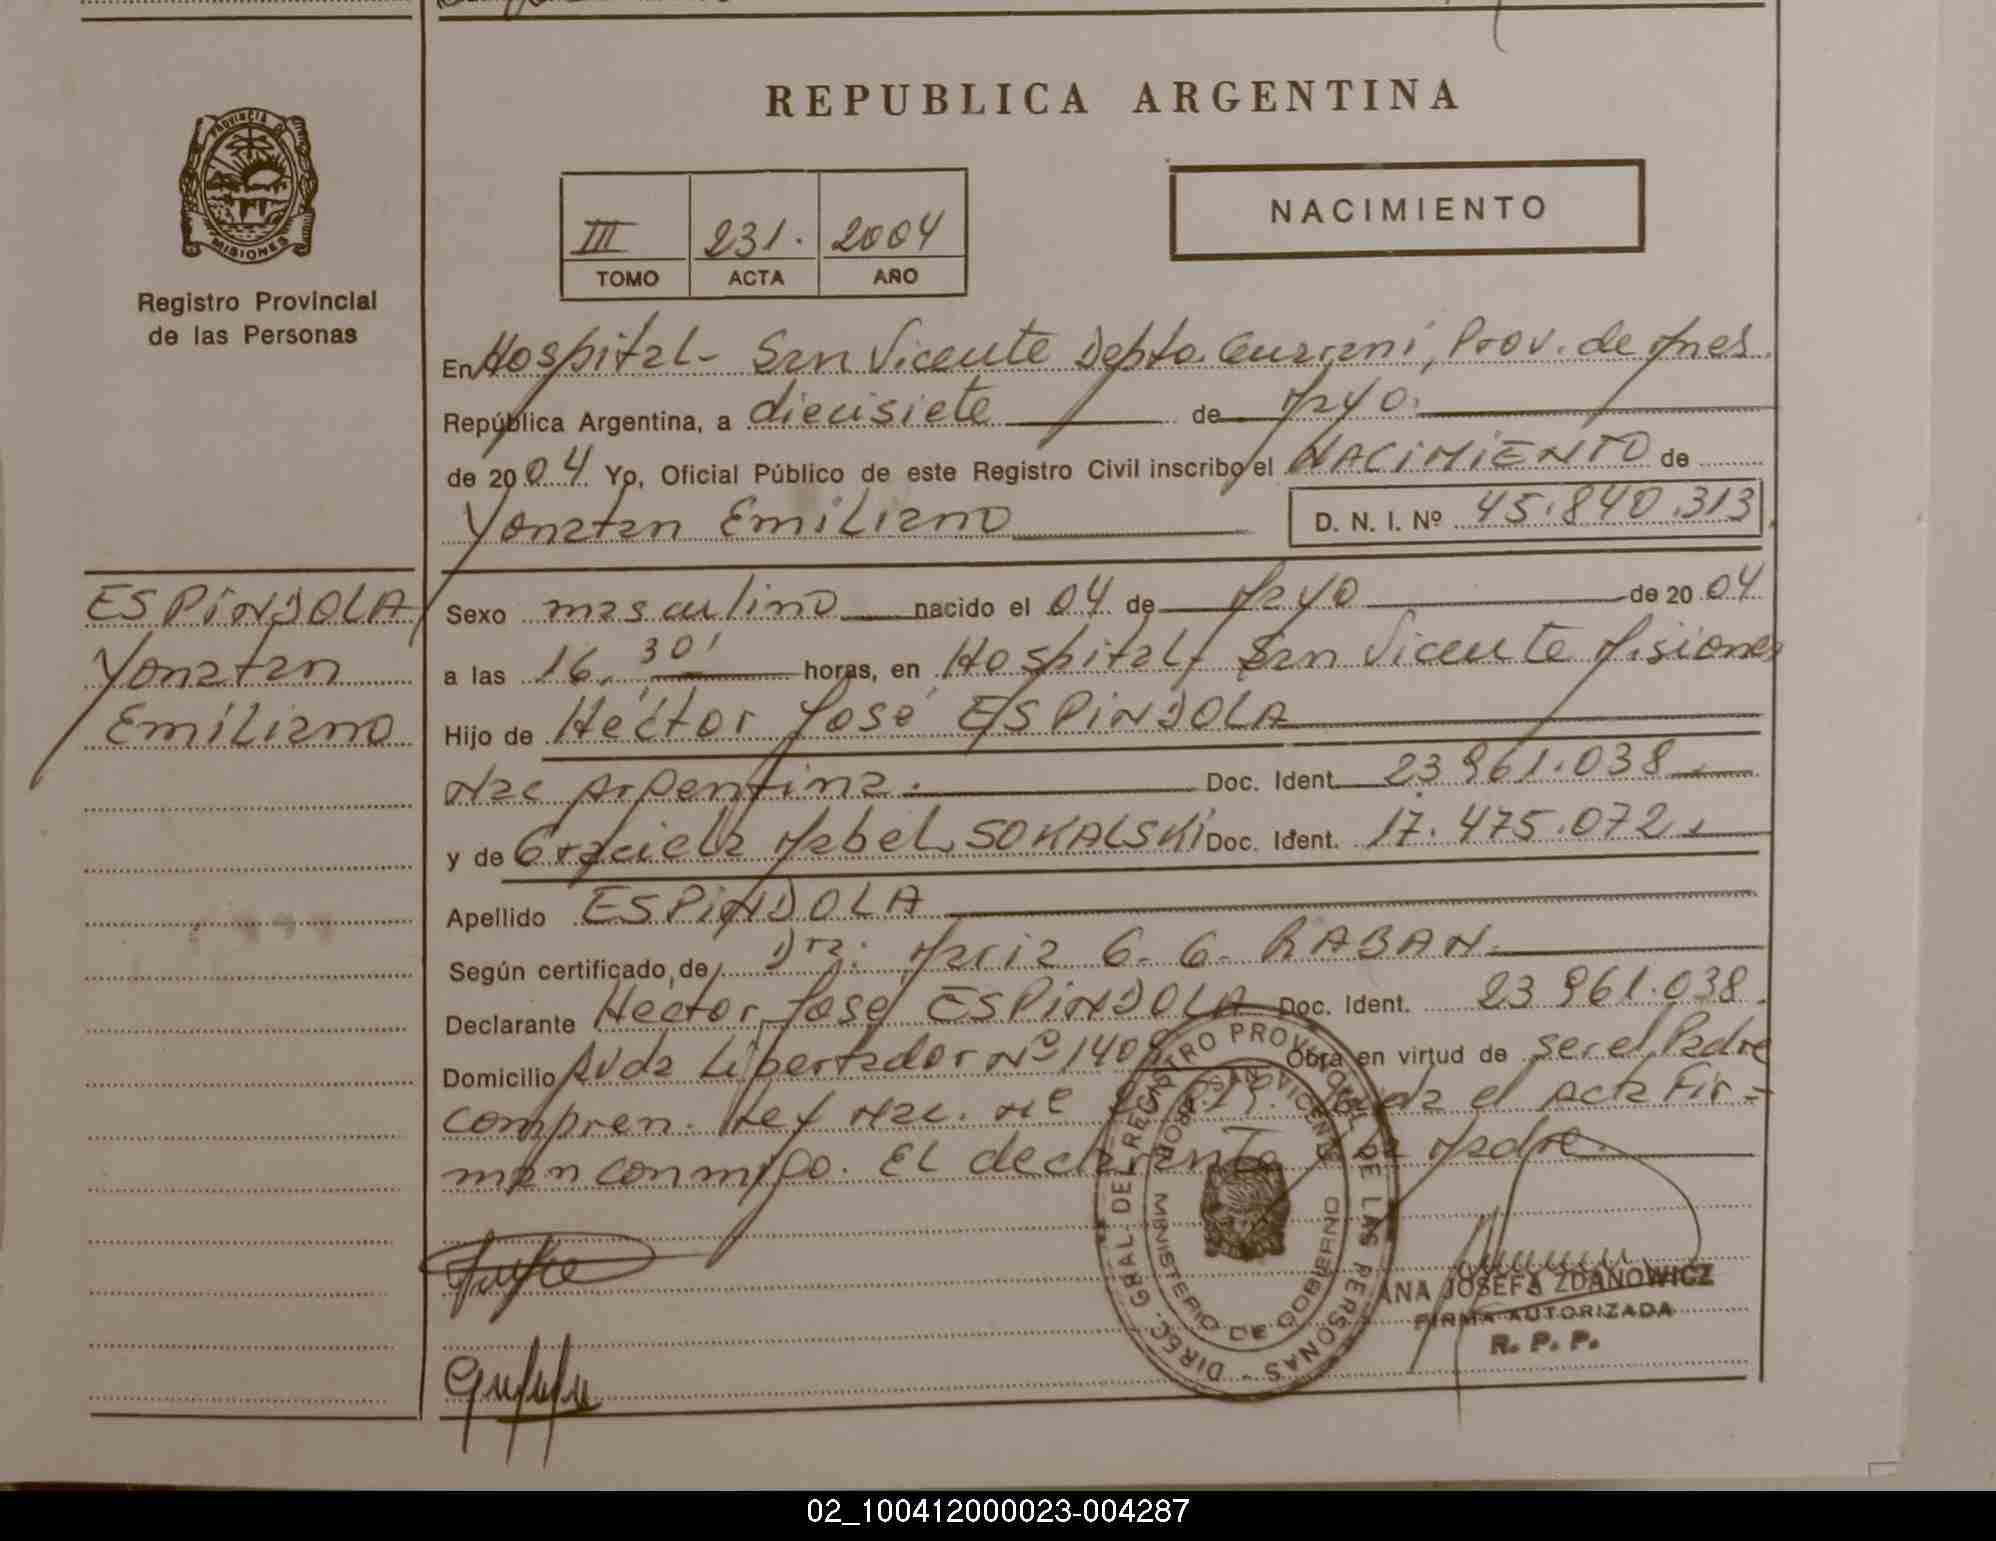 REPUBLICA ARGENTINA
PROVINCIA DE
MISIONES
Registro Provincial
de las Personas
III 231. 2004
TOMO ACTA AÑO
NACIMIENTO
En Hospital - San Vicente Depto. Guaraní, Prov. de Mnes.
República Argentina, a diecisiete de Mayo.
de 2004. Yo, Oficial Público de este Registro Civil inscribo el NACIMIENTO de
Yonatan Emiliano
D. N. I. Nº 45.840.313
ESPINDOLA
Yonatan
Emiliano
Sexo masculino nacido el 04 de Mayo de 2004
a las 16, 30' horas, en Hospital - San Vicente Misiones
Hijo de Héctor José ESPINDOLA
Nac Argentina. Doc. Ident. 23.961.038
y de Graciela Mabel SOKALSKI Doc. Ident. 17.475.072
Apellido ESPINDOLA
Según certificado de Dra. María G. G. RABAN
Declarante Hector José ESPINDOLA Doc. Ident. 23 961.038
Domicilio Avda Libertador Nº Obra en virtud de ser el Padre
compren. Ley Nac. Nº el acta Fir=
man conmigo. El declarante y la Madre.
DIREC. GRAL. DEL REGISTRO PROVINCIAL DE LAS PERSONAS
MINISTERIO DE GOBIERNO
SAN VICENTE
ANA JOSEFA ZDANOWICZ
FIRMA AUTORIZADA
R. P. P.
02_100412000023-004287